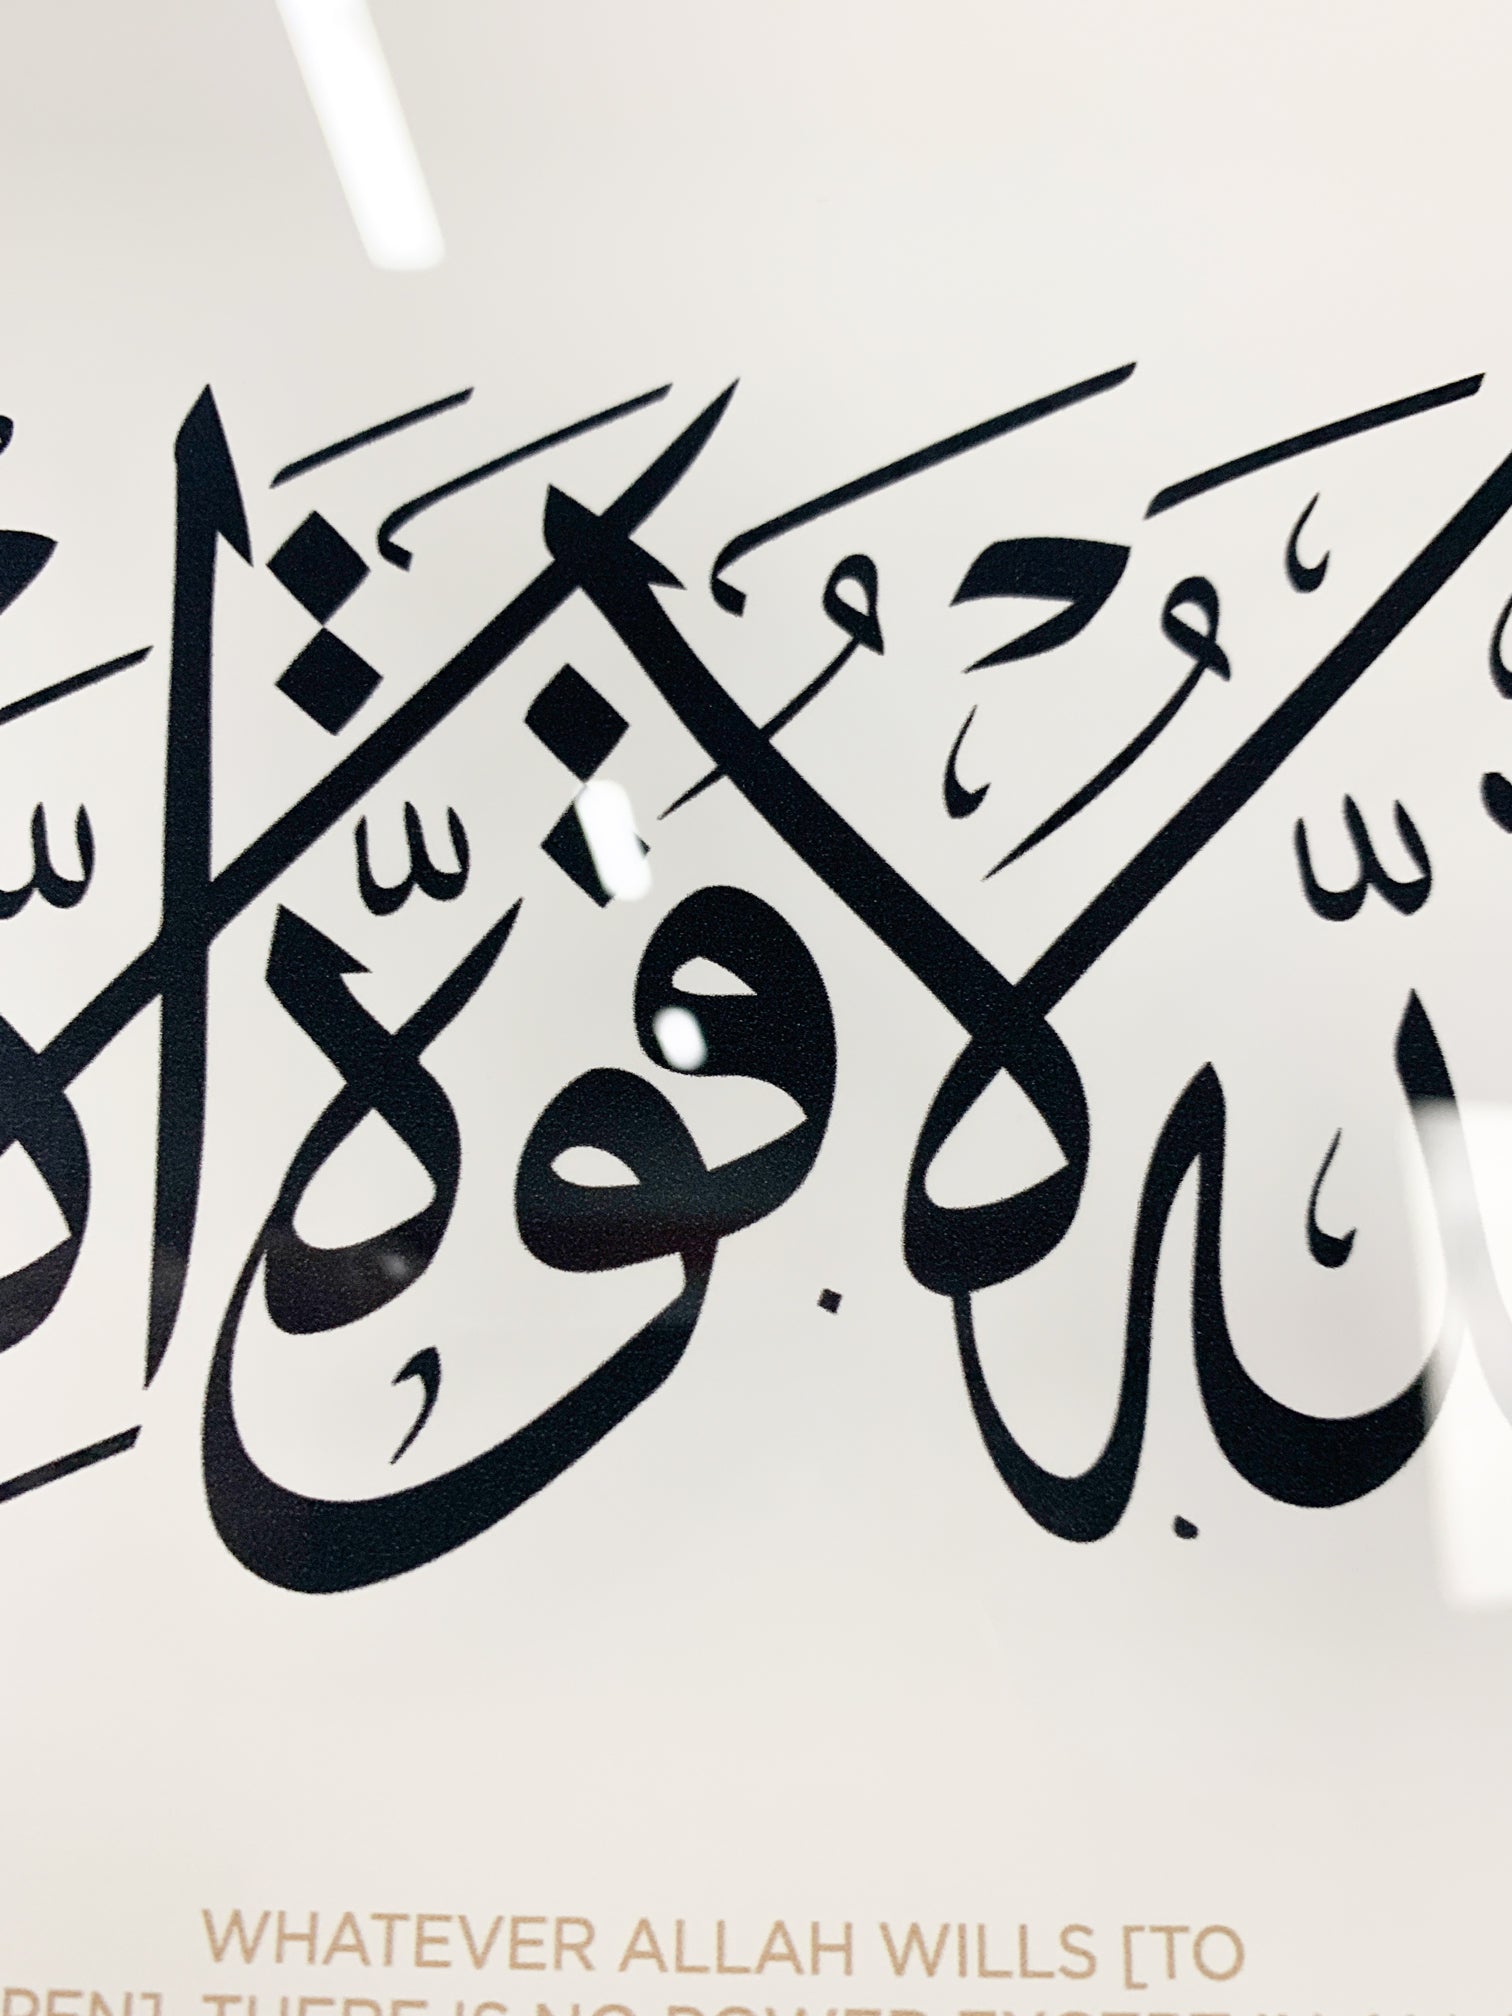 الله لا قوة إلا
WHATEVER ALLAH WILLS [TO
PEN]. THERE IS NO POWER EXCEPT IN ALL